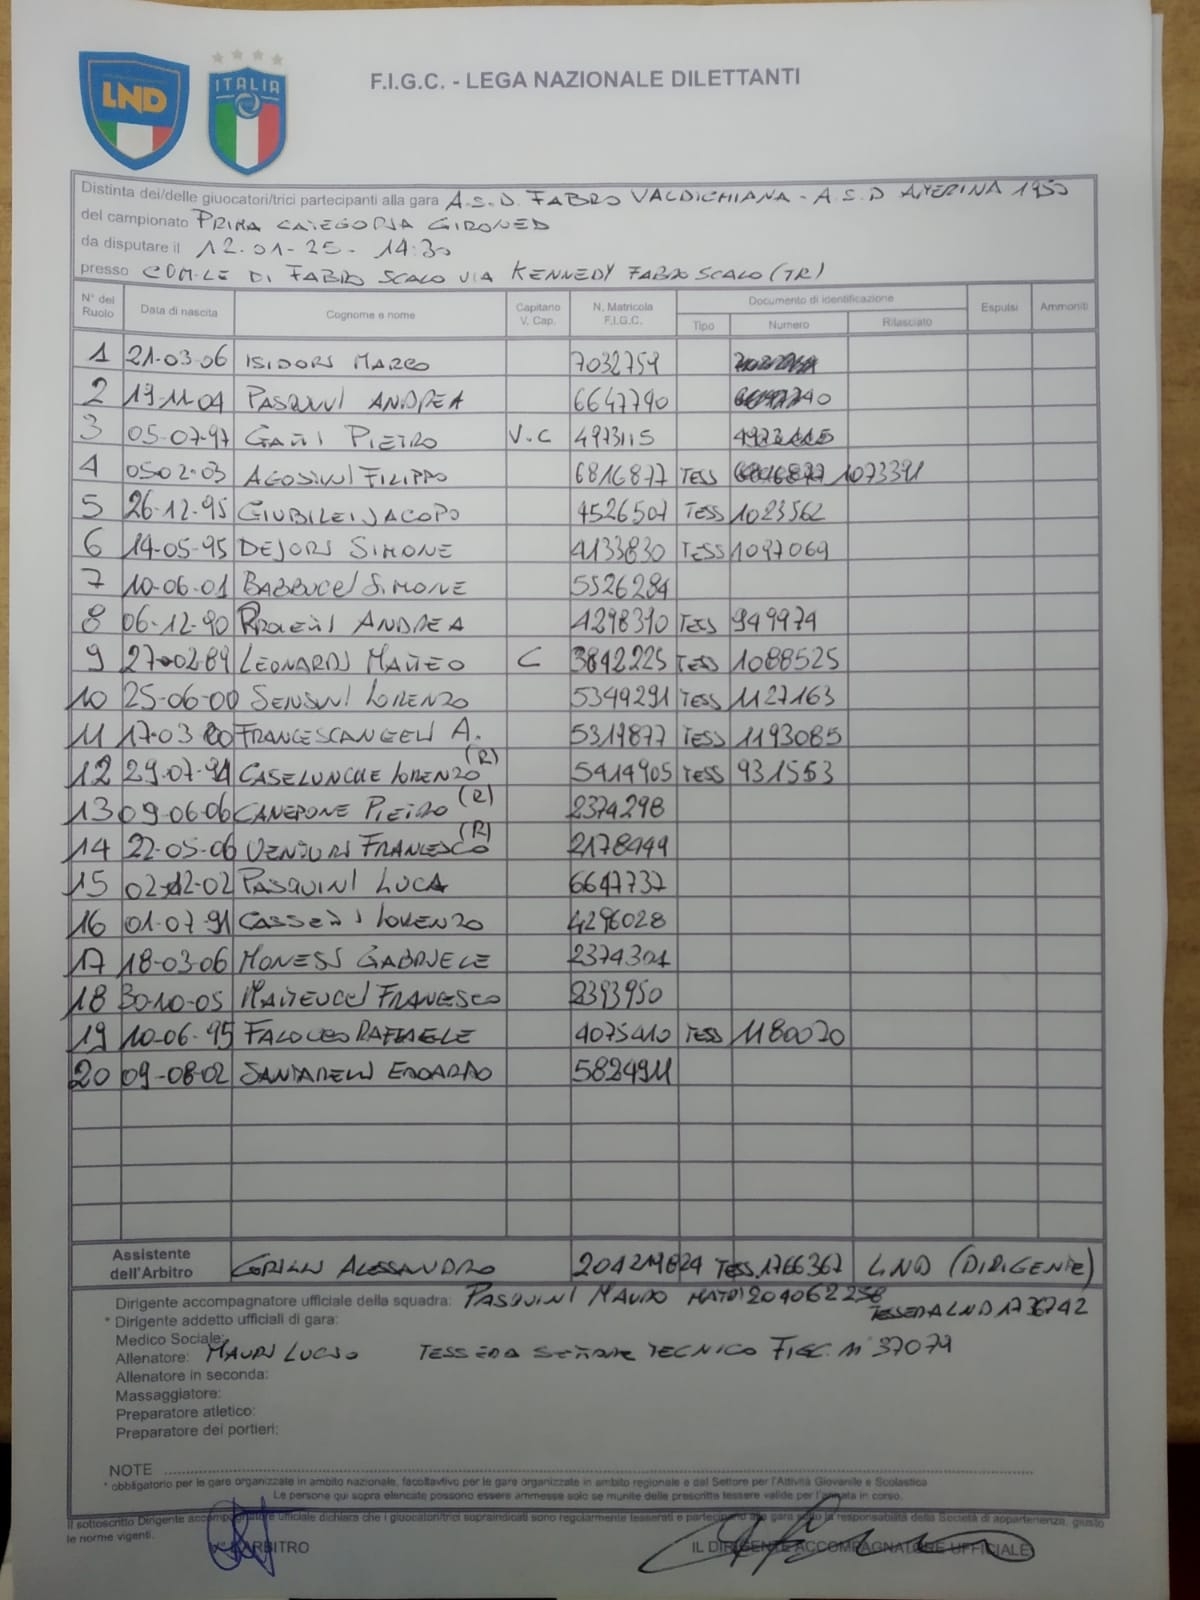 LND
ITALIA
F.I.G.C. - LEGA NAZIONALE DILETTANTI
Distinta dei/delle giuocatori/trici partecipanti alla gara A.S.D. FABRO VALDICHIANA - A.S.D AMERINA 1950
del campionato PRIMA CATEGORIA GIRONE D
da disputare il 12-01-25 - 14:30
presso COM.LE DI FABRO SCALO VIA KENNEDY FABRO SCALO (TR)
N° del Ruolo Data di nascita Cognome e nome Capitano V. Cap. N. Matricola F.I.G.C. Documento di identificazione Espulsi Ammoniti
Tipo Numero Rilasciato
1 21-03-06 ISIDORI MARCO 7032759
2 19-11-04 PASQUINI ANDREA 6647740
3 05-07-97 GATTI PIETRO V.C 4973115
4 05-02-03 AGOSTINI FILIPPO 6816877 TESS 1073391
5 26-12-95 GIUBILEI JACOPO 4526507 TESS 1023562
6 14-05-95 DEIORI SIMONE 4133830 TESS 1097069
7 10-06-01 BABBUCCI SIMONE 5526284
8 06-12-90 ANDREA 4298390 TESS 949974
9 27-02-89 LEONARDI MATTEO C 3842225 TESS 1088525
10 25-06-00 SENSINI LORENZO 5349291 TESS 1127163
11 17-03-00 FRANCESCANGELI A. 5319877 TESS 1193085
12 29-07-94 LORENZO (R) 5414905 TESS 931553
13 09-06-06 CANEPONE PIETRO (R) 2374298
14 22-05-06 VENTURI FRANCESCO (R) 2178449
15 02-12-02 PASQUINI LUCA 6647737
16 01-07-91 CASSETTI LORENZO 4296028
17 18-03-06 MONESI GABRIELE 2374301
18 30-10-05 MATTEUCCI FRANCESCO 2393950
19 10-06-95 RAFFAELE 4075410 TESS 1180020
20 09-08-02 SANTARELLI EDOARDO 5824911
Assistente dell'Arbitro ALESSANDRO TESS.1766367 LND (DIRIGENTE)
Dirigente accompagnatore ufficiale della squadra: PASQUINI MAURO MATR 204062258
TESSERA LND 1736742
* Dirigente addetto ufficiali di gara:
Medico Sociale:
Allenatore: MAURI LUCIO TESSERA SETTORE TECNICO FIGC N° 37079
Allenatore in seconda:
Massaggiatore:
Preparatore atletico:
Preparatore dei portieri:
NOTE
* obbligatorio per le gare organizzate in ambito nazionale, facoltavtivo per le gare organizzate in ambito regionale e dal Settore per l'Attività Giovanile e Scolastica
Le persone qui sopra elencate possono essere ammesse solo se munite delle prescritte tessere valide per l'annata in corso.
Il sottoscritto Dirigente accompagnatore ufficiale dichiara che i giuocatori/trici sopraindicati sono regolarmente tesserati e partecipano alla gara sotto la responsabilità della Società di appartenenza, giusto
le norme vigenti.
L'ARBITRO IL DIRIGENTE ACCOMPAGNATORE UFFICIALE